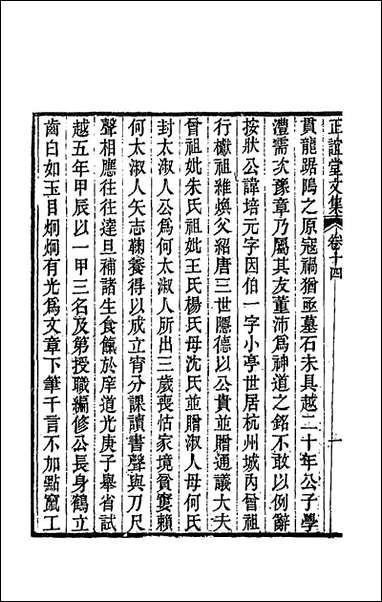 正誼堂文集 卷十四 一
貫龍踞陽之原寇禍猶亟墓石未具越二十年公子學
灃需次豫章乃屬其友董沛爲神道之銘不敢以例辭
按狀公諱培元字因伯一字小亭世居杭州城內曾祖
行檙祖維煥父紹唐三世隱德以公貴並贈通議大夫
曾祖妣朱氏祖妣王氏楊氏母沈氏並贈淑人母何氏
封太淑人公爲何太淑人所出三歲喪怙家境貧窶賴
何太淑人矢志鞠養得以成立宵分課讀書聲與刀尺
聲相應往往達旦補諸生食餼於庠道光庚子舉省試
越五年甲辰以一甲三名及第授職編修公長身鶴立
齒白如玉目炯炯有光爲文章下筆千言不加點竄工